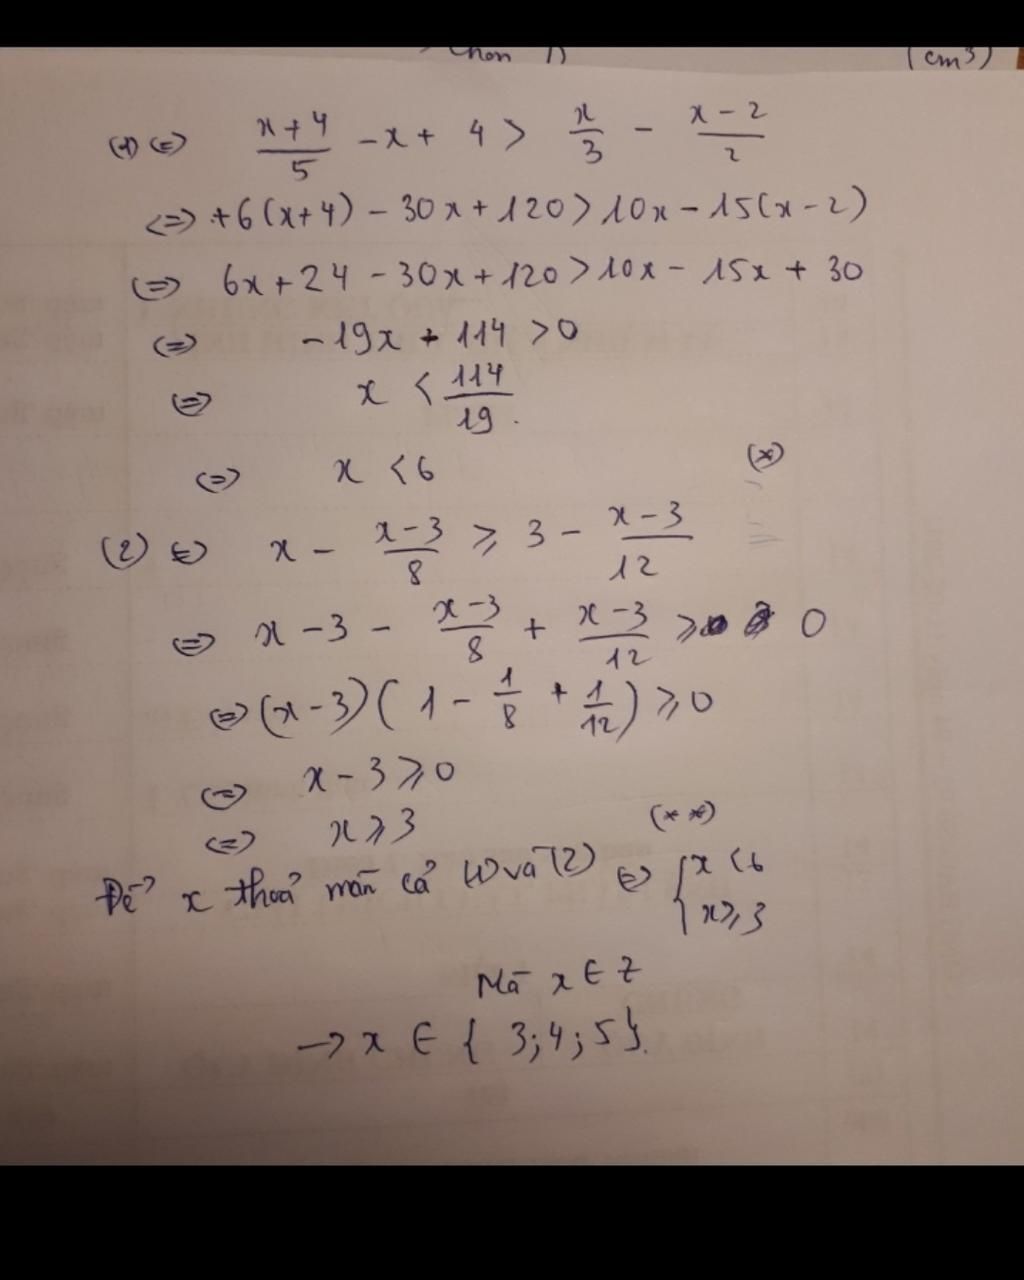 (cm3)
(1) <=> (x+4)/5 - x + 4 > x/3 - (x-2)/2
<=> +6(x+4) - 30x + 120 > 10x - 15(x-2)
<=> 6x + 24 - 30x + 120 > 10x - 15x + 30
<=> -19x + 114 > 0
<=> x < 114/19.
<=> x < 6 (*)
(2) <=> x - (x-3)/8 ⩾ 3 - (x-3)/12
<=> x - 3 - (x-3)/8 + (x-3)/12 ⩾ 0
<=> (x-3)(1 - 1/8 + 1/12) ⩾ 0
<=> x - 3 ⩾ 0
<=> x ⩾ 3 (**)
Để x thoả mãn cả (1) và (2) <=> { x < 6
x ⩾ 3
Mà x ∈ Z
→ x ∈ { 3; 4; 5 }.